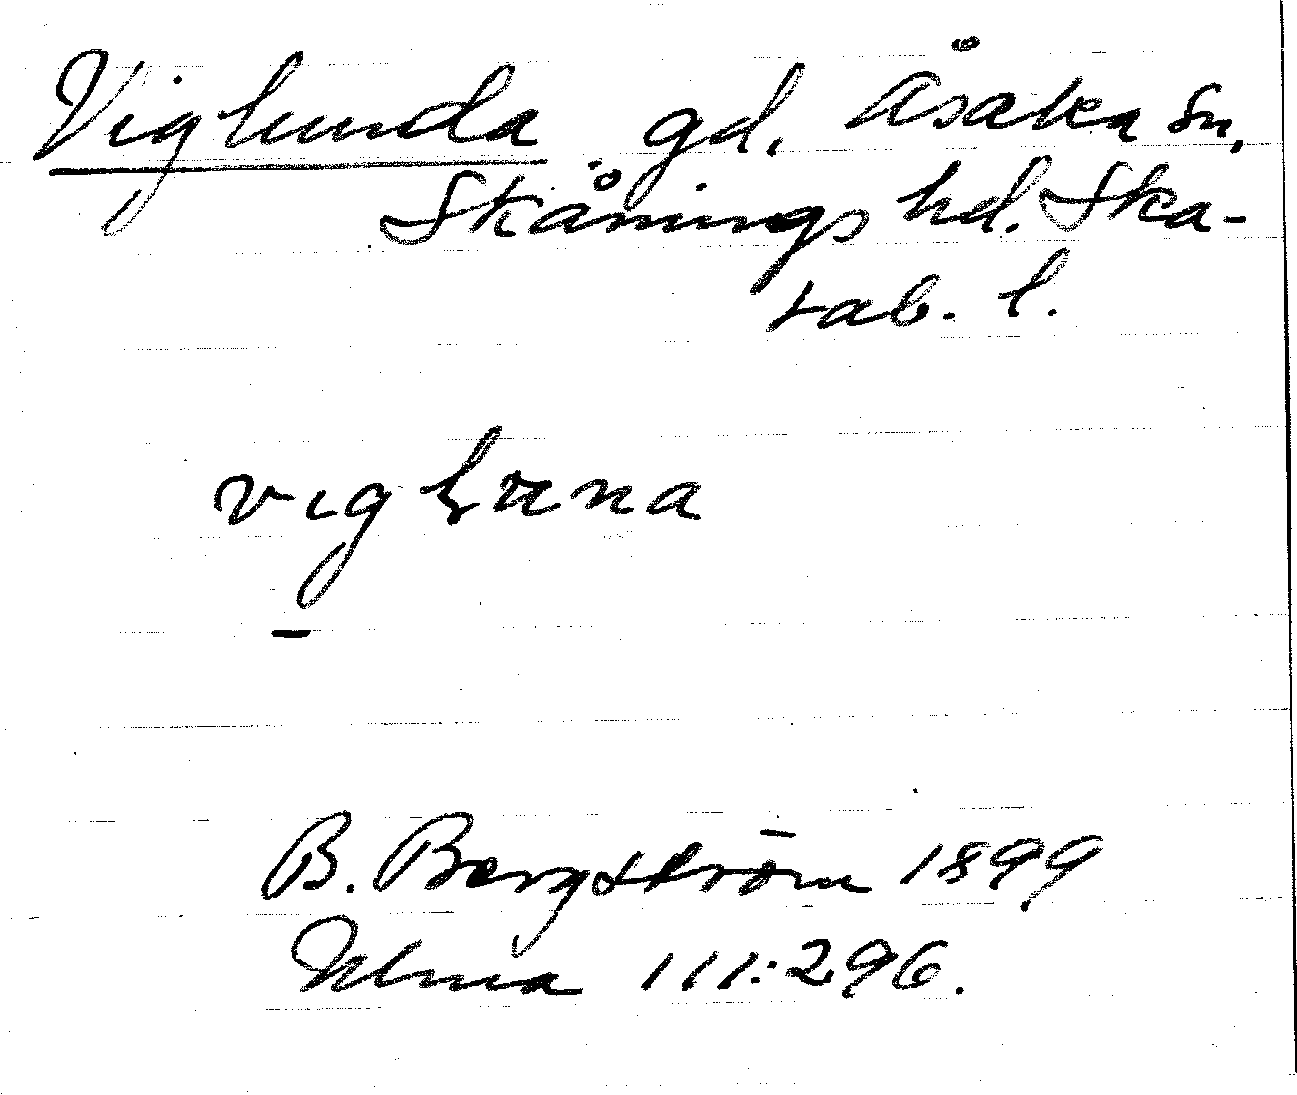 Viglunda gd. Åsaka sn,
Skånings hd. Ska-
rab. l.
B. Bergström 1899
Ulma 111:296.